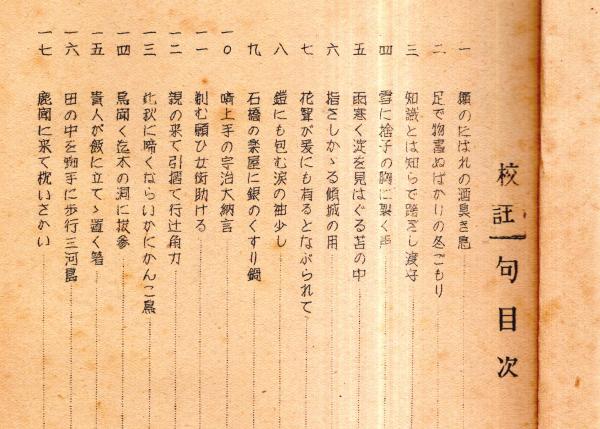 校註句目次
一 額のたはれの酒臭き息
二 足で物書ぬばかりの冬ごもり
三 知識とは知らで踏ぎし渡守
四 雪に捨子の胸に裂く
五 雨寒く淀を見はぐる苫の中
六 指さしかゝる傾城の用
七 花聟が爰にも有るとながられて
八 鎧にも包む涙の袖少し
九 石橋の楽屋に銀のくすり鍋
一〇 噺上手の宇治大納言
一一 剃む願ひ女街助ける
一二 親の来て引摺て行辻角力
一三 此秋に啼くならいかにかんこ鳥
一四 鳥岡く迄木の洞に拔參
一五 貴人が飯に立てゝ置く箸
一六 田の中を蜘手に歩行三河島
一七 鹿聞に来て枕いさかい